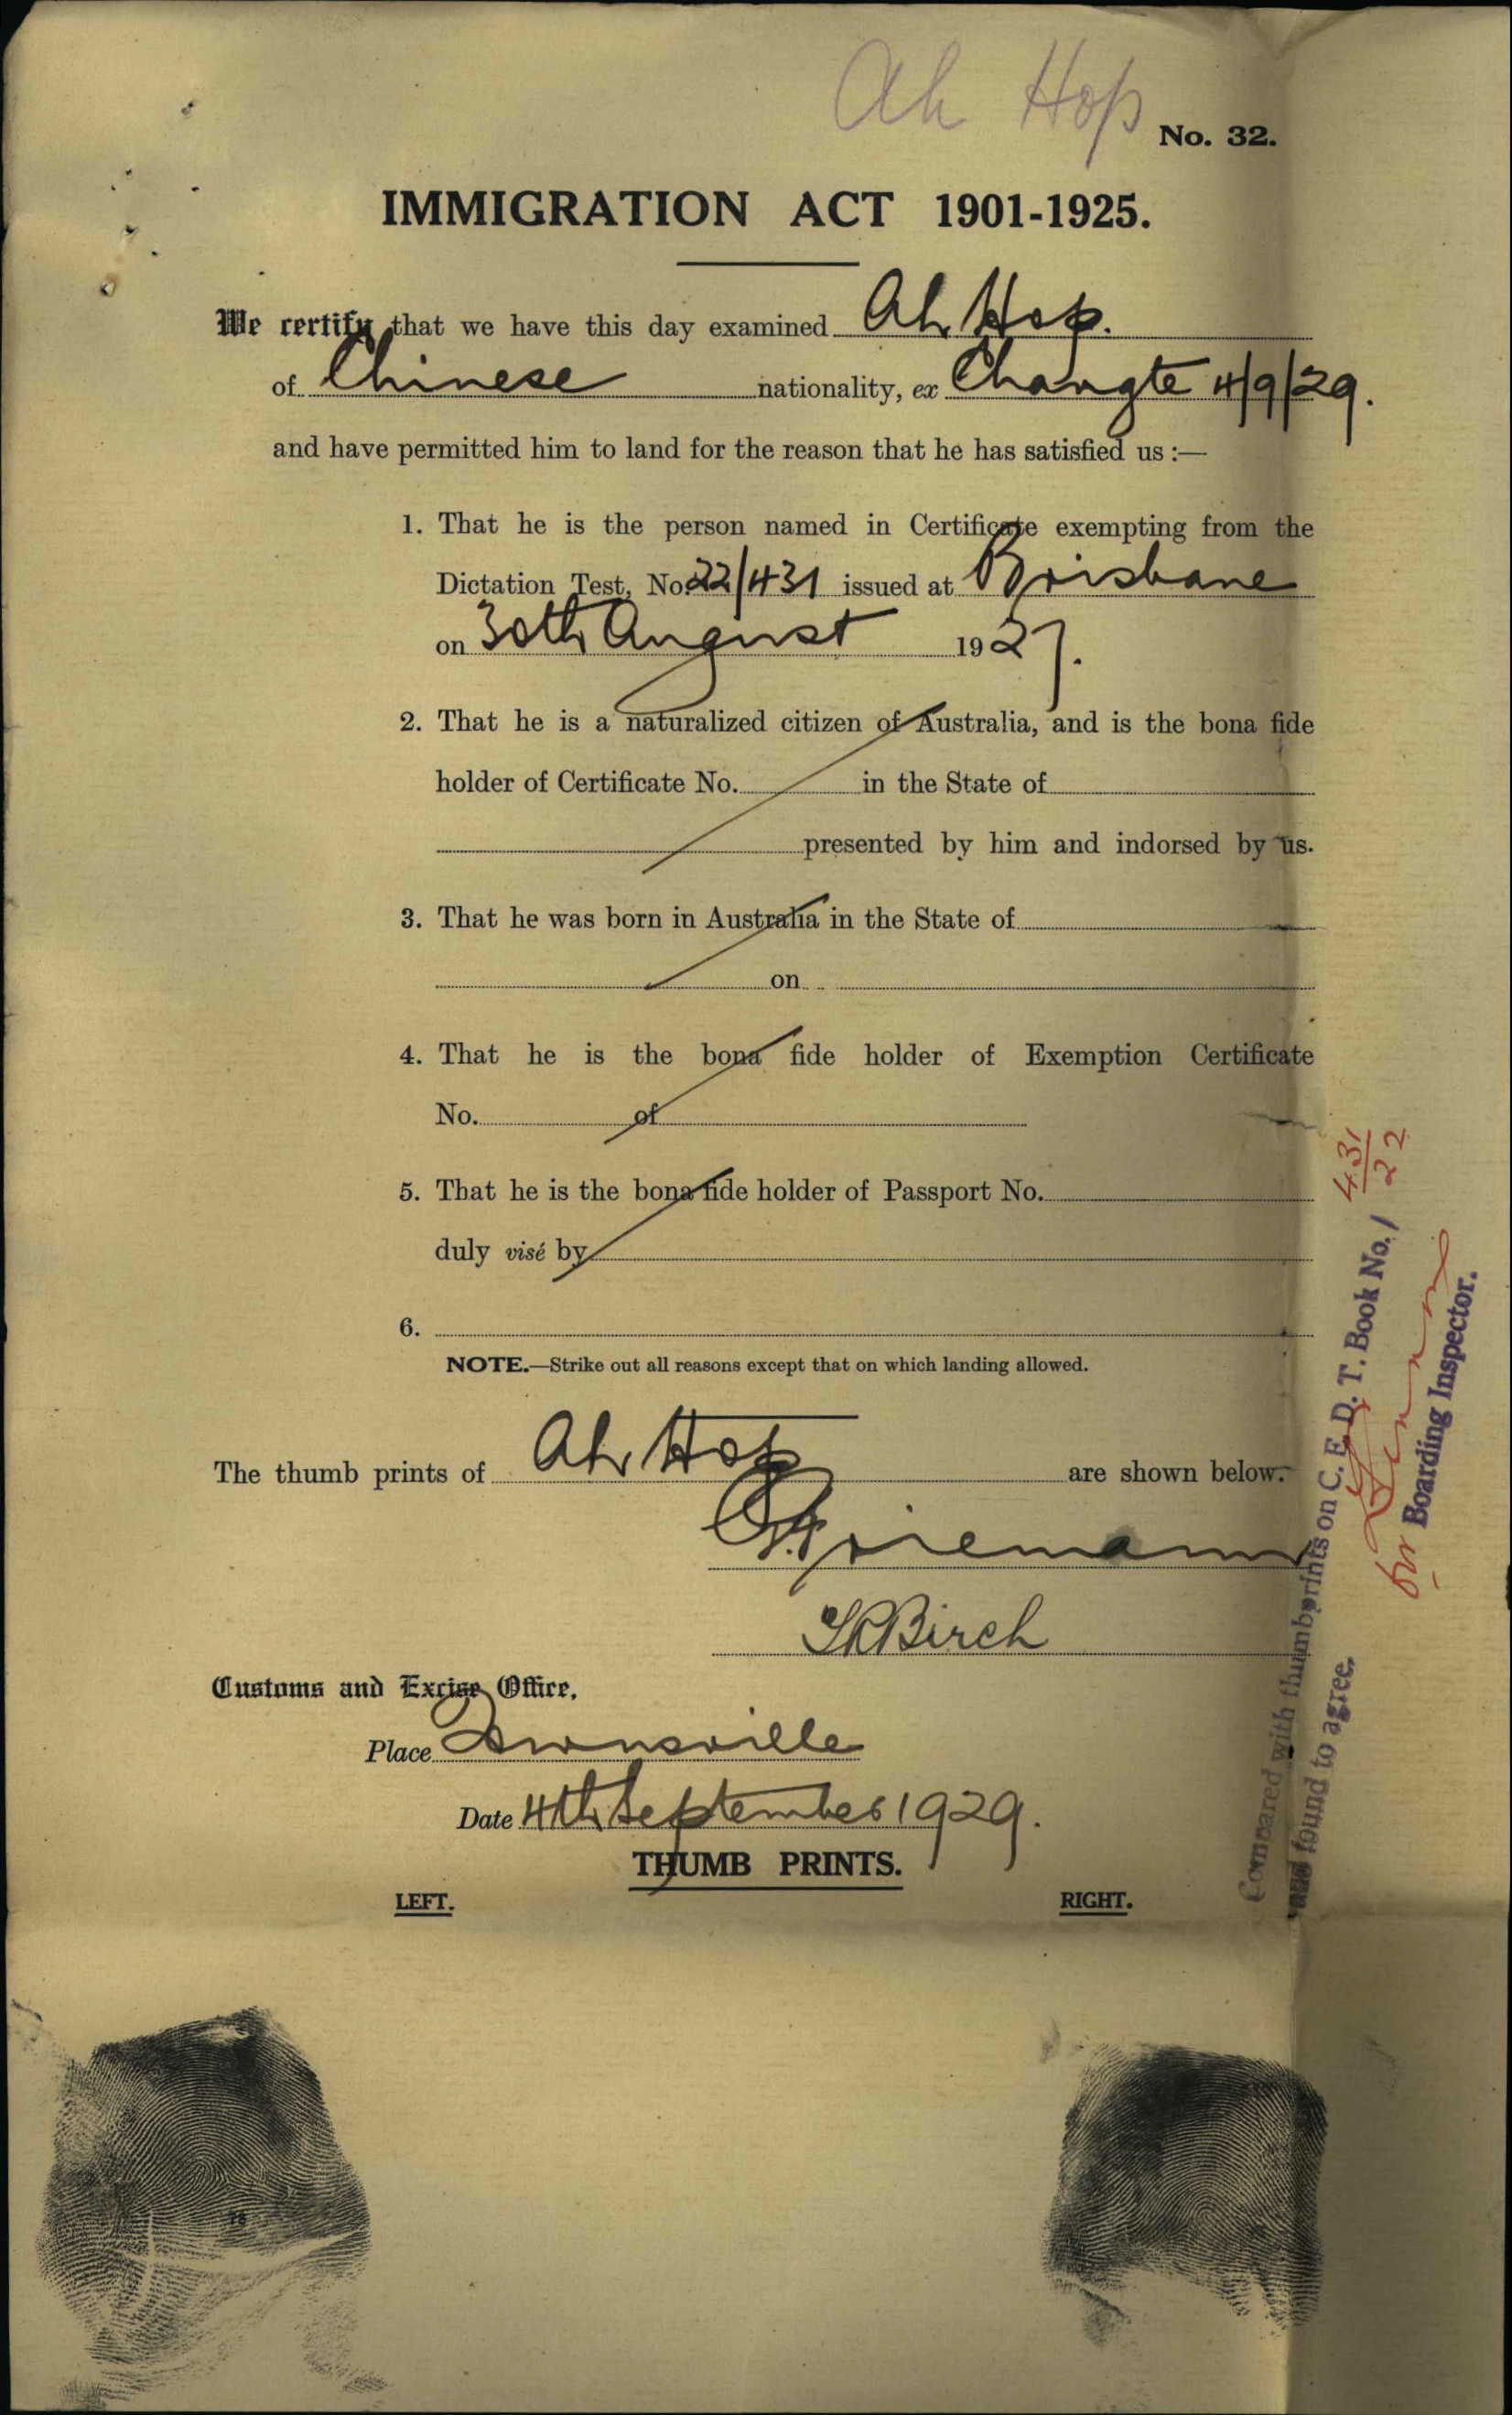 Ah Hop
No. 32.
IMMIGRATION ACT 1901-1925.
We certify that we have this day examined Ah Hop.
of Chinese nationality, ex Changte 4/9/29.
and have permitted him to land for the reason that he has satisfied us :—
1. That he is the person named in Certificate exempting from the
Dictation Test, No. 22/431 issued at Brisbane
on 30th August 1927.
2. That he is a naturalized citizen of Australia, and is the bona fide
holder of Certificate No. in the State of
presented by him and indorsed by us.
3. That he was born in Australia in the State of
on
4. That he is the bona fide holder of Exemption Certificate
No. of
5. That he is the bona fide holder of Passport No.
duly visé by
6.
NOTE.—Strike out all reasons except that on which landing allowed.
The thumb prints of Ah Hop are shown below.
Birch
Customs and Excise Office,
Place Townsville
Date 4th September 1929.
THUMB PRINTS.
LEFT. RIGHT.
Compared with thumbprints on C. E. D. T. Book No. 431/22
and found to agree.
for Boarding Inspector.